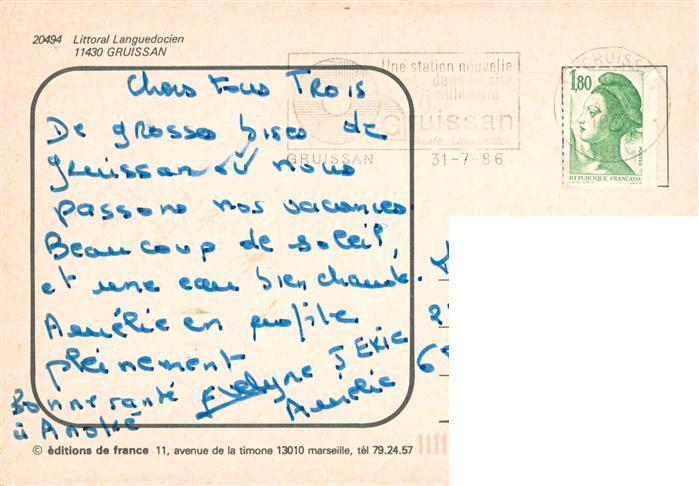 20494 Littoral Languedocien
11430 GRUISSAN
Une station nouvelle
dans un site
millénaire
Gruissan
Aude. Languedoc
GRUISSAN 31-7-86
GRUISSAN
1,80
POSTES
REPUBLIQUE FRANÇAISE
Chers tous Trois
De grosso bises de
gruissan où nous
passons nos vacances.
Beaucoup de soleil,
et une eau bien chaude.
Amélie en profite
pleinement
Evelyne J ERIC
Amélie
Bonne santé
à André
© éditions de france 11, avenue de la timone 13010 marseille, tél 79.24.57